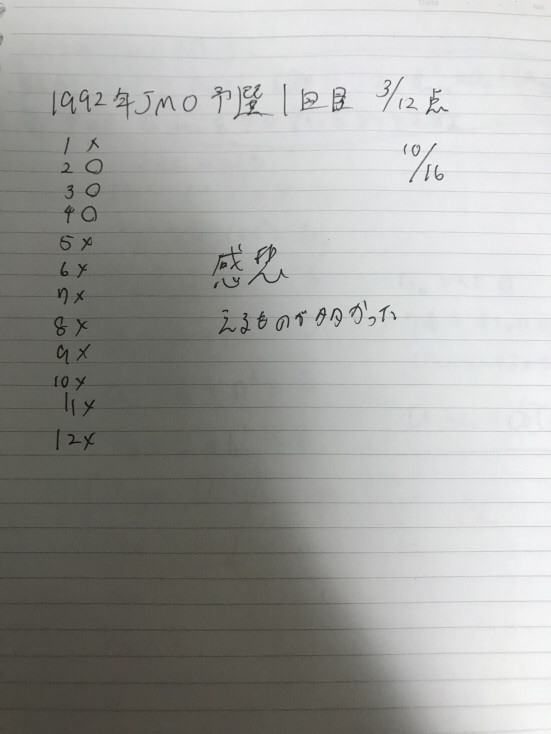 1992年JMO予選1回目 3/12点
10/16
1 ×
2 ○
3 ○
4 ○
5 ×
6 ×
7 ×
8 ×
9 ×
10 ×
11 ×
12 ×
感想
えるものが多かった